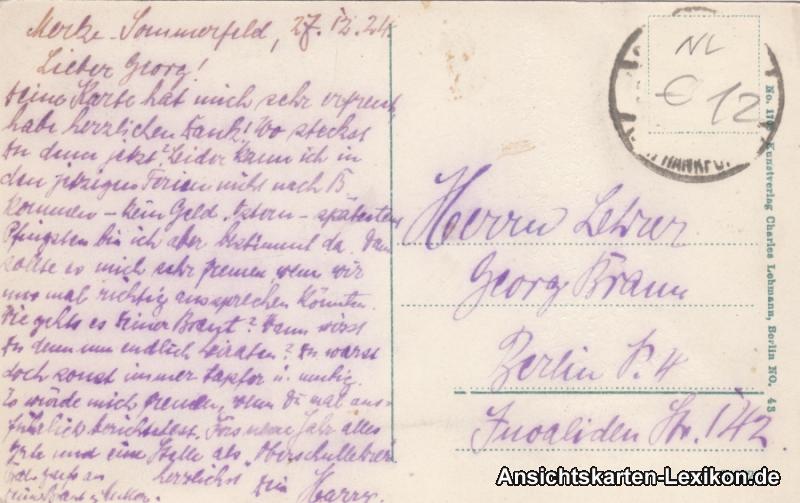 Merke-Sommerfeld, 27.12.24
Lieber Georg!
Deine Karte hat mich sehr erfreut,
habe herzlichen Dank! Wo steckst
Du denn jetzt? Leider kann ich in
den jetzigen Ferien nicht nach B
kommen - kein Geld. Ostern - spätestens
Pfingsten bin ich aber bestimmt da. Dann
sollte es mich sehr freuen, wenn wir
uns mal richtig aussprechen könnten.
Wie gehts es Deiner Braut? Wann wirst
Du denn nun endlich heiraten? Du warst
doch sonst immer tapfer u. mutig.
Es würde mich freuen, wenn Du mal aus-
führlich berichtetest. Fürs neue Jahr alles
Gute und eine Stelle als Oberschullehrer
herzlichst Dein Harry.
NL
€ 12
FRANKFU
Herrn Lehrer
Georg Braun
Berlin N. 4
Invaliden Str. 142
Kunstverlag Charles Lehmann, Berlin NO. 43
Ansichtskarten-Lexikon.de